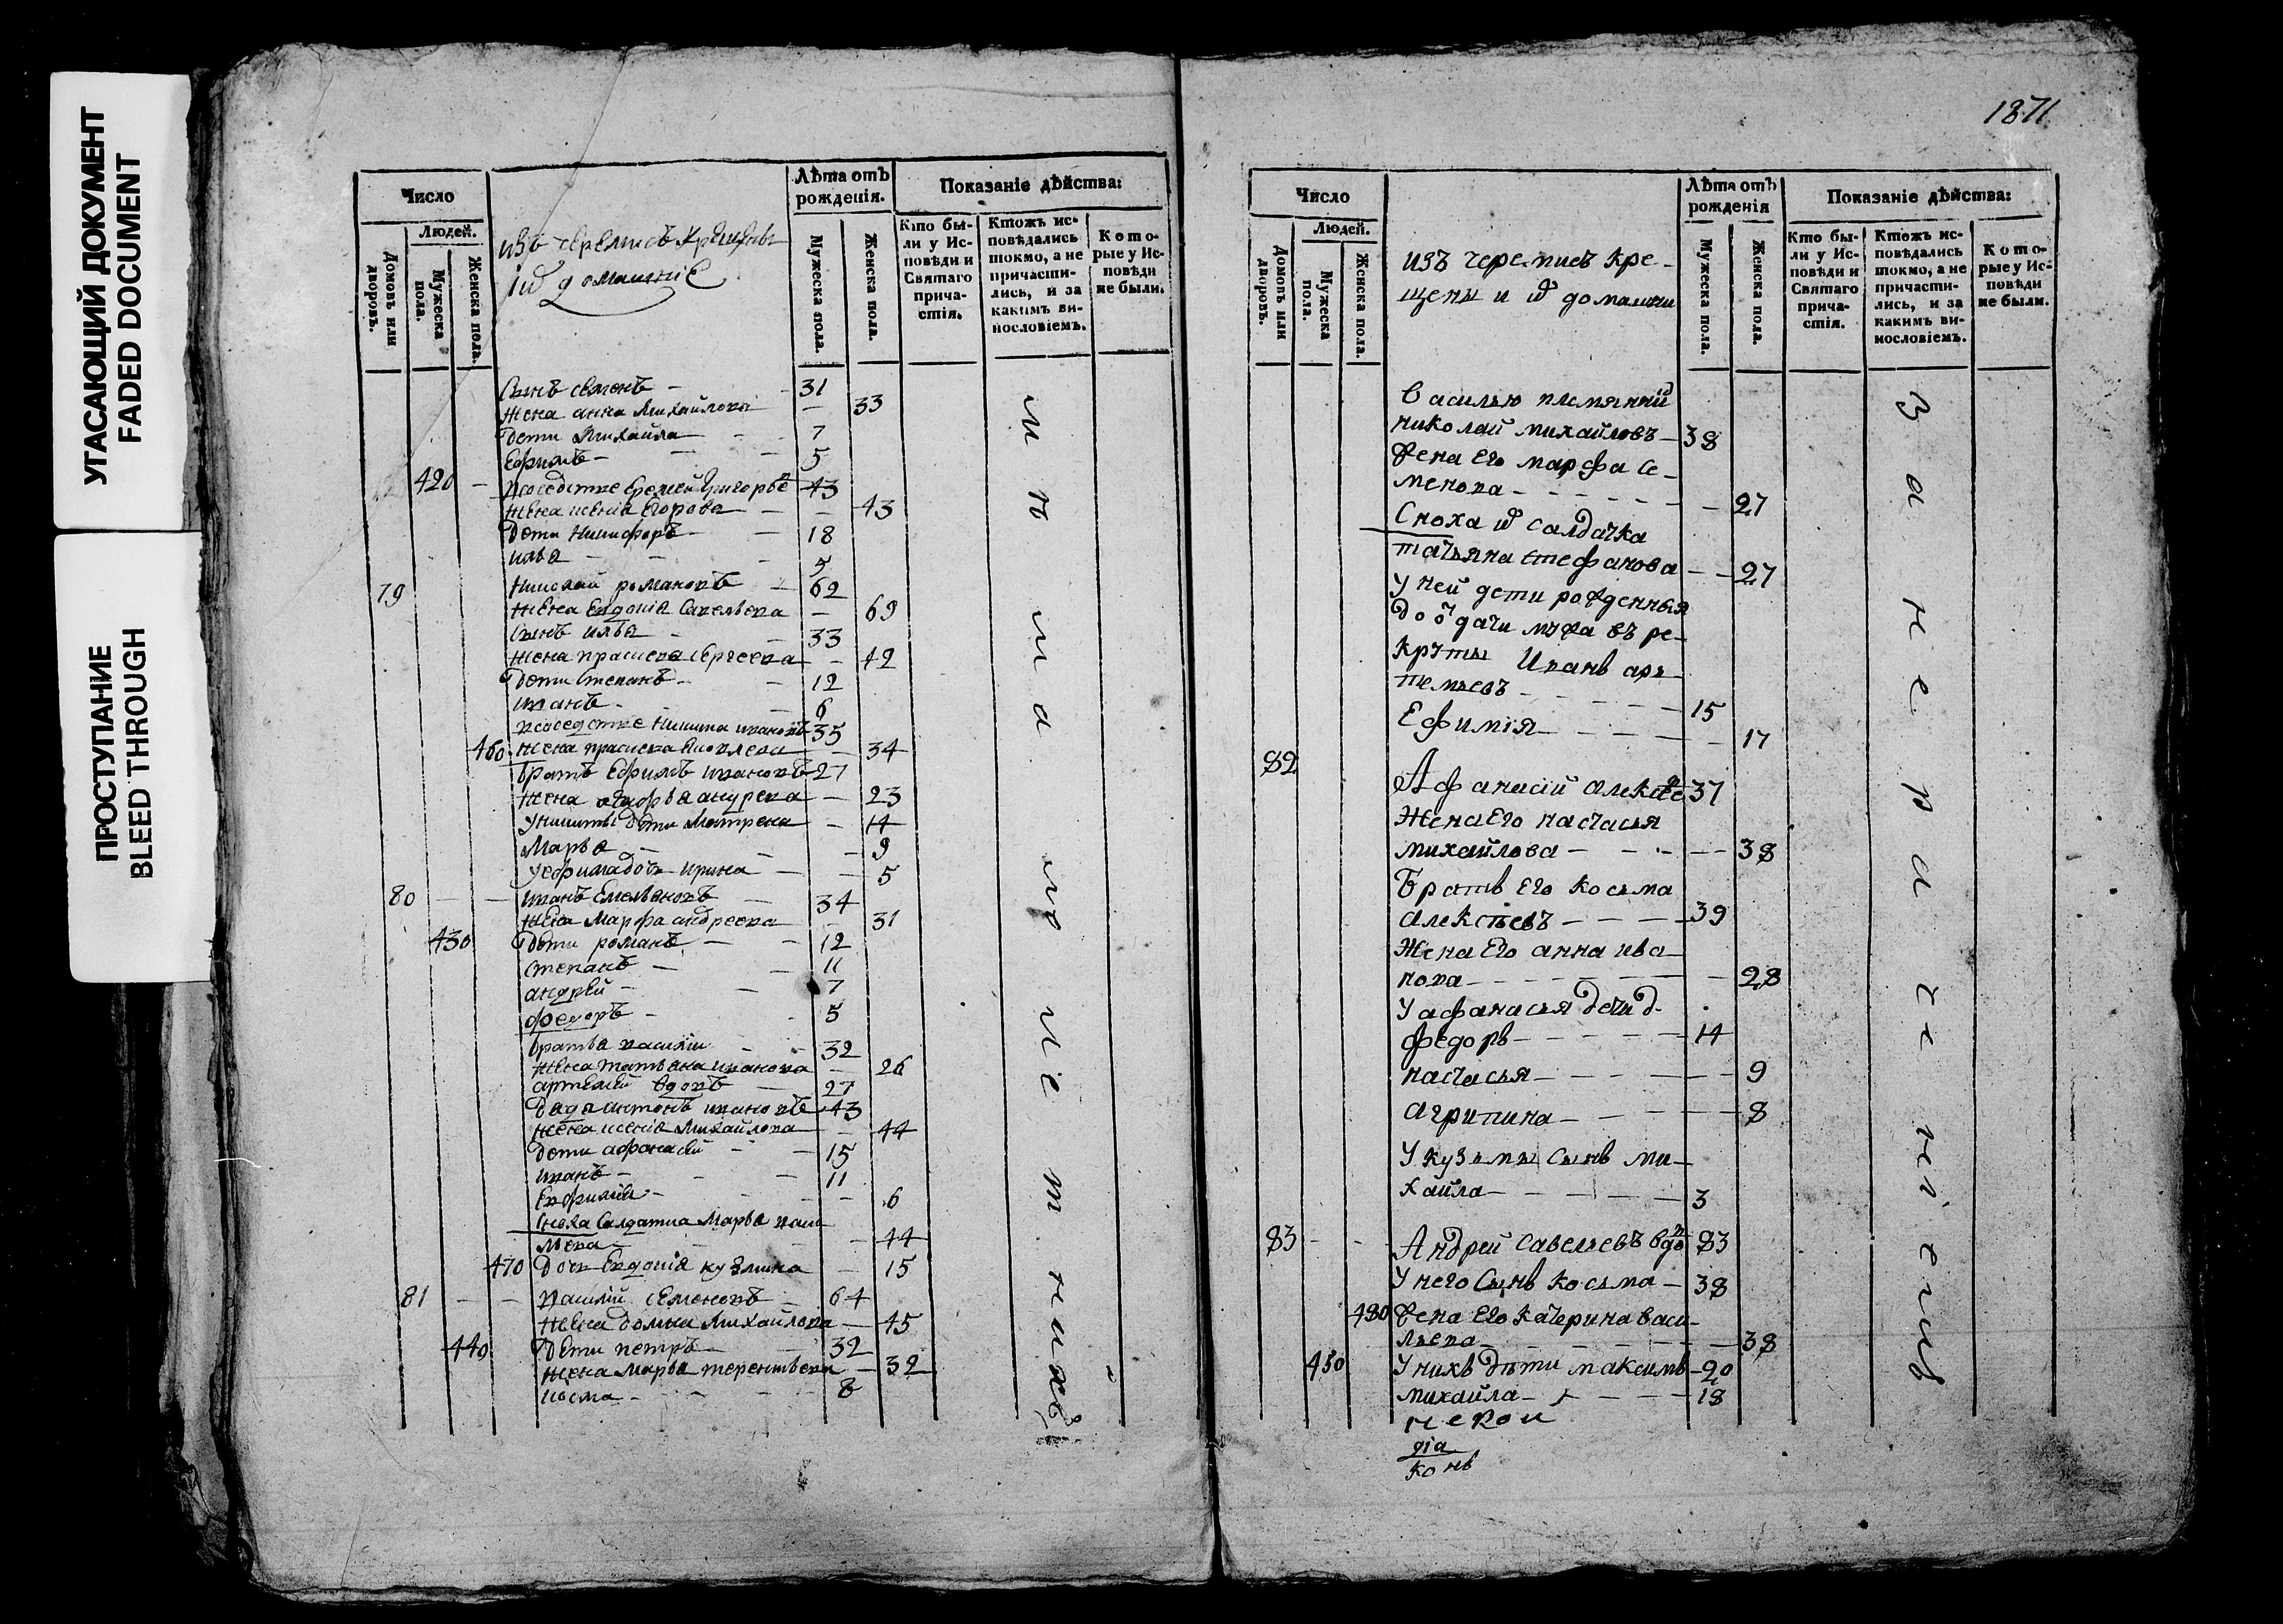 УГАСАЮЩИЙ ДОКУМЕНТ
FADED DOCUMENT
ПРОСТУПАНИЕ
BLEED THROUGH
Число
Людей.
Домовъ или дворовъ.
Мужеска пола.
Женска пола.
изъ черемисъ Крещены
и домашніе
Лѣта отъ рожденія.
Мужеска пола.
Женска пола.
Показаніе дѣйства:
Кто бы-
ли у Ис-
повѣди и
Святаго
прича-
стія.
Ктожъ ис-
повѣдались
токмо, а не
причасти-
лись, и за
какимъ ви-
нословіемъ.
Кото-
рые у Ис-
повѣди
не были.
Сынъ семенъ - 31
Жена анна Михайлова - 33
Дети Михаила - 7
Ефимъ - 5
420 - Еремей Григорье 43
Жена ксеніа Егорова - 43
Дети Никифоръ - 18
илья - 5
79 Николай романовъ - 62
Жена Евдокіа Савельева - 69
Сынъ илья - 33
Жена Сергеева - 42
Дети Степанъ - 12
иванъ - 6
Никита ивановъ 35
460 Жена Яковлева - 34
братъ Ефимъ ивановъ 27
Жена агафья андреева - 23
У никиты дети Матрена - 14
Марья - 9
У ефима дочь ирина - 5
80 - - иванъ Емельяновъ - 34
Жена Марфа андреева - 31
430 Дети романъ - 12
степанъ - 11
андрей - 7
федоръ - 5
братья василій - 32
Жена татьяна иванова - 26
артемий вдовъ - 27
Дядя антонъ ивановъ 43
Жена ксеніа Михайлова - 44
Дети афанасей - 15
иванъ - 11
Ефиміа - 6
Сноха Салдатка Марья
- 44
470 Дочь Евдокіа кузмина - 15
81 - - Василій семеновъ - 64
Жена домна Михайлова - 45
440 Дети петръ - 32
Жена Марья терентьева - 32
косма - 8
1871
Число
Людей.
Домовъ или дворовъ.
Мужеска пола.
Женска пола.
изъ черемисъ кре-
щены и домашни
Лѣта отъ рожденія
Мужеска пола.
Женска пола.
Показаніе дѣйства:
Кто бы-
ли у Ис-
повѣди и
Святаго
прича-
стія.
Ктожъ ис-
повѣдались
токмо, а не
причасти-
лись, и за
какимъ ви-
нословіемъ.
Кото-
рые у Ис-
повѣди
не были.
Василью племянни
николай михайловъ - 38
Жена Его марфа Се-
менова - - - - 27
Сноха салдачка
татьяна стефанова - - 27
У ней дети рожденныя
до отдачи мужа въ ре-
круты Иванъ ар-
темьевъ - - - - 15
Ефимія - - - - 17
82
Афанасій алексѣе 37
Жена Его настасья
михайлова - - - - 38
Братъ Его косма
алексѣевъ - - - - 39
Жена Его анна ива-
нова - - - - 28
У афанасья дети
федоръ - - - - 14
настасья - - - - 9
агрипина - - - - 8
У кузьмы сынъ ми-
хайла - - - - 3
83 - - Андрей савельевъ вдо 83
У него Сынъ косма - 38
480 Жена Его катерина васи-
льева - - - - 38
450 У нихъ дѣти максимъ - 20
михайла - - - - 18
діа
конъ